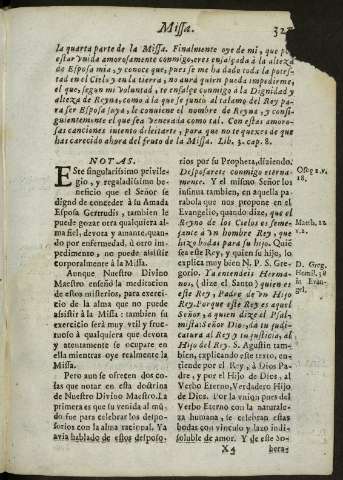 Missa.
la quarta parte de la Missa. Finalmente oye de mi, que
estar vnida amorosamente conmigo, eres ensalçada à la alteza
de Esposa mia, y conoce que, pues se me ha dado toda la potes-
tad en el Cielo, y en la tierra, no aurà quien pueda impedirme,
el que, segun mi voluntad, te ensalçe conmigo à la Dignidad y
alteza de Reyna, como à la que se junto al talamo del Rey pa-
ra ser Esposa suya, le conuiene el nombre de Reyna, y consi-
guientemente el que sea venerada como tal. Con estas amoro-
sas canciones intento deleitarte, para que no te quexes de que
has carecido ahora del fruto de la Missa. Lib. 3. cap. 8.
NOTAS.
ESte singularissimo priuile-
gio, y regaladissimo be-
neficio que el Señor se
dignò de conceder à su Amada
Esposa Gertrudis, tambien le
puede gozar otra qualquiera al-
ma fiel, deuota y amante, quan-
do por enfermedad, ù otro im-
pedimento, no puede assistir
corporalmente à la Missa.
Aunque Nuestro Divino
Maestro enseñò la meditacion
de estos misterios, para exerci-
cio de la alma que no puede
assistir à la Missa: tambien su
exercicio serà muy vtil y fruc-
tuoso à qualquiera que deuota
y atentamente se ocupare en
ella mientras oye realmente la
Missa.
Pero aun se ofrecen dos co-
sas que notar en esta doctrina
de Nuestro Divino Maestro. La
primera es que su venida al mū-
do fue para celebrar los desposo-
rios con la alma racional. Ya
avia hablado de estos desposo-
rios por su Propheta, diziendo.
Desposarete conmigo eterna-
mente. Y el mismo Señor los
insinua tambien, en aquella pa-
rabola que nos propone en el
Evangelio, quando dize, que el
Reyno de los Cielos es semej-
ante à vn hombre Rey, que
hizo bodas para su hijo. Quiē
sea este Rey, y quien su hijo, lo
explica muy bien N. P. S. Gre-
gorio. Ya entendeis Herma-
nos, (dize el Santo) quien es
este Rey, Padre de vn Hijo
Rey. Porque este Rey es aquel
Señor, à quien dize el Psal-
mista: Señor Dios, da tu ju-
dicatura al Rey y tu justicia, al
Hijo del Rey. S. Agustin tam-
bien, explicando este texto, en-
tiende por el Rey, à Dios Pa-
dre, y por el Hijo de Dios, al
Verbo Eterno, Verdadero Hijo
de Dios. Por la vnion pues del
Verbo Eterno con la naturale-
za humana, se celebraron estas
bodas con vinculo y lazo indi-
soluble de amor. Y de este So-
Oseę 2. v.
18.
Matth. 22
v. 2.
D. Greg.
Homil. 38
in Evan-
gel.
X 4
bera-